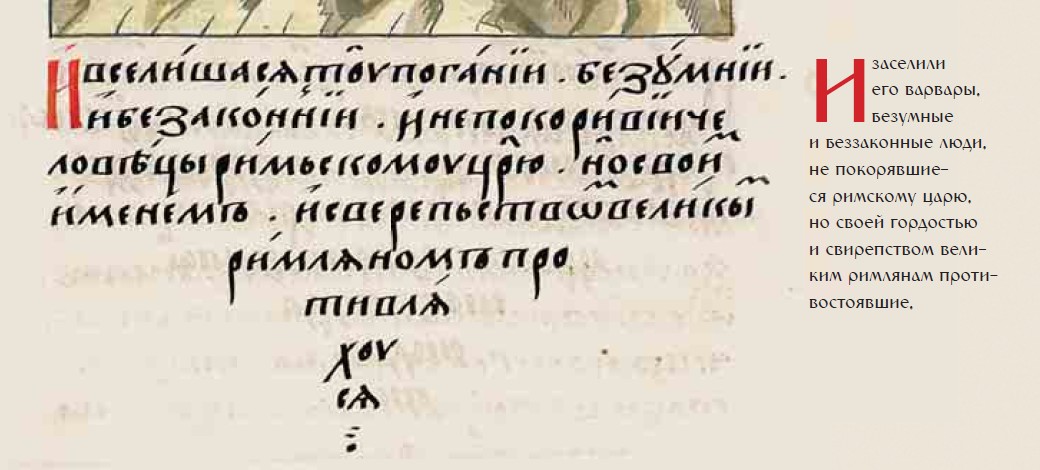 И вселиша́ся тоу погани́и . безꙋмнїи .
и҆ беззако́ннїи . и҆ непокори́вїи че
ловѣ́цы ри́мьскомоу црю . но свои
и҆́менемъ . и҆ свѣрепьством вели́кы
ри́мляномъ про
тивля́
хоу
ся
И заселили
его варвары,
безумные
и беззаконные люди,
не покорявшие-
ся римскому царю,
но своей гордостью
и свирепством вели-
ким римлянам проти-
востоявшие,